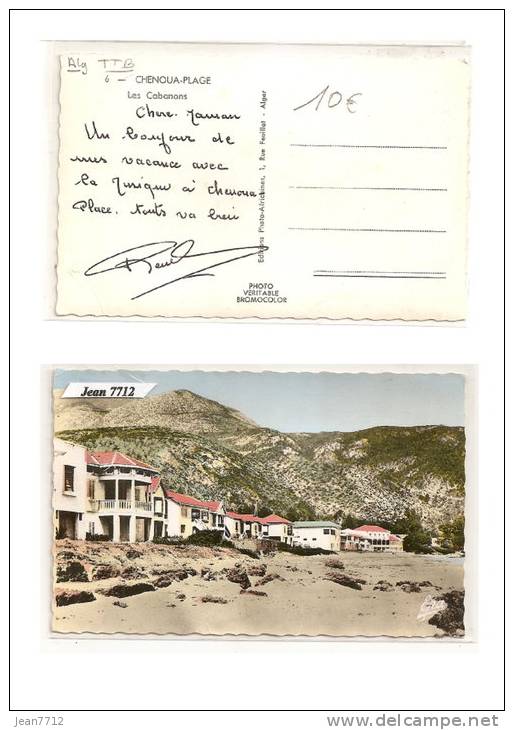 Alg TTB
6 — CHENOUA-PLAGE
Les Cabanons
10€
Chere. Maman
Un bonjour de
mes vacance avec
la musique à chenoua
Place. touts va bien
Editions Photo-Africaines, 1, Rue Feuillet - Alger
PHOTO
VERITABLE
BROMOCOLOR
Jean 7712
jean7712
http://www.delcampe.net